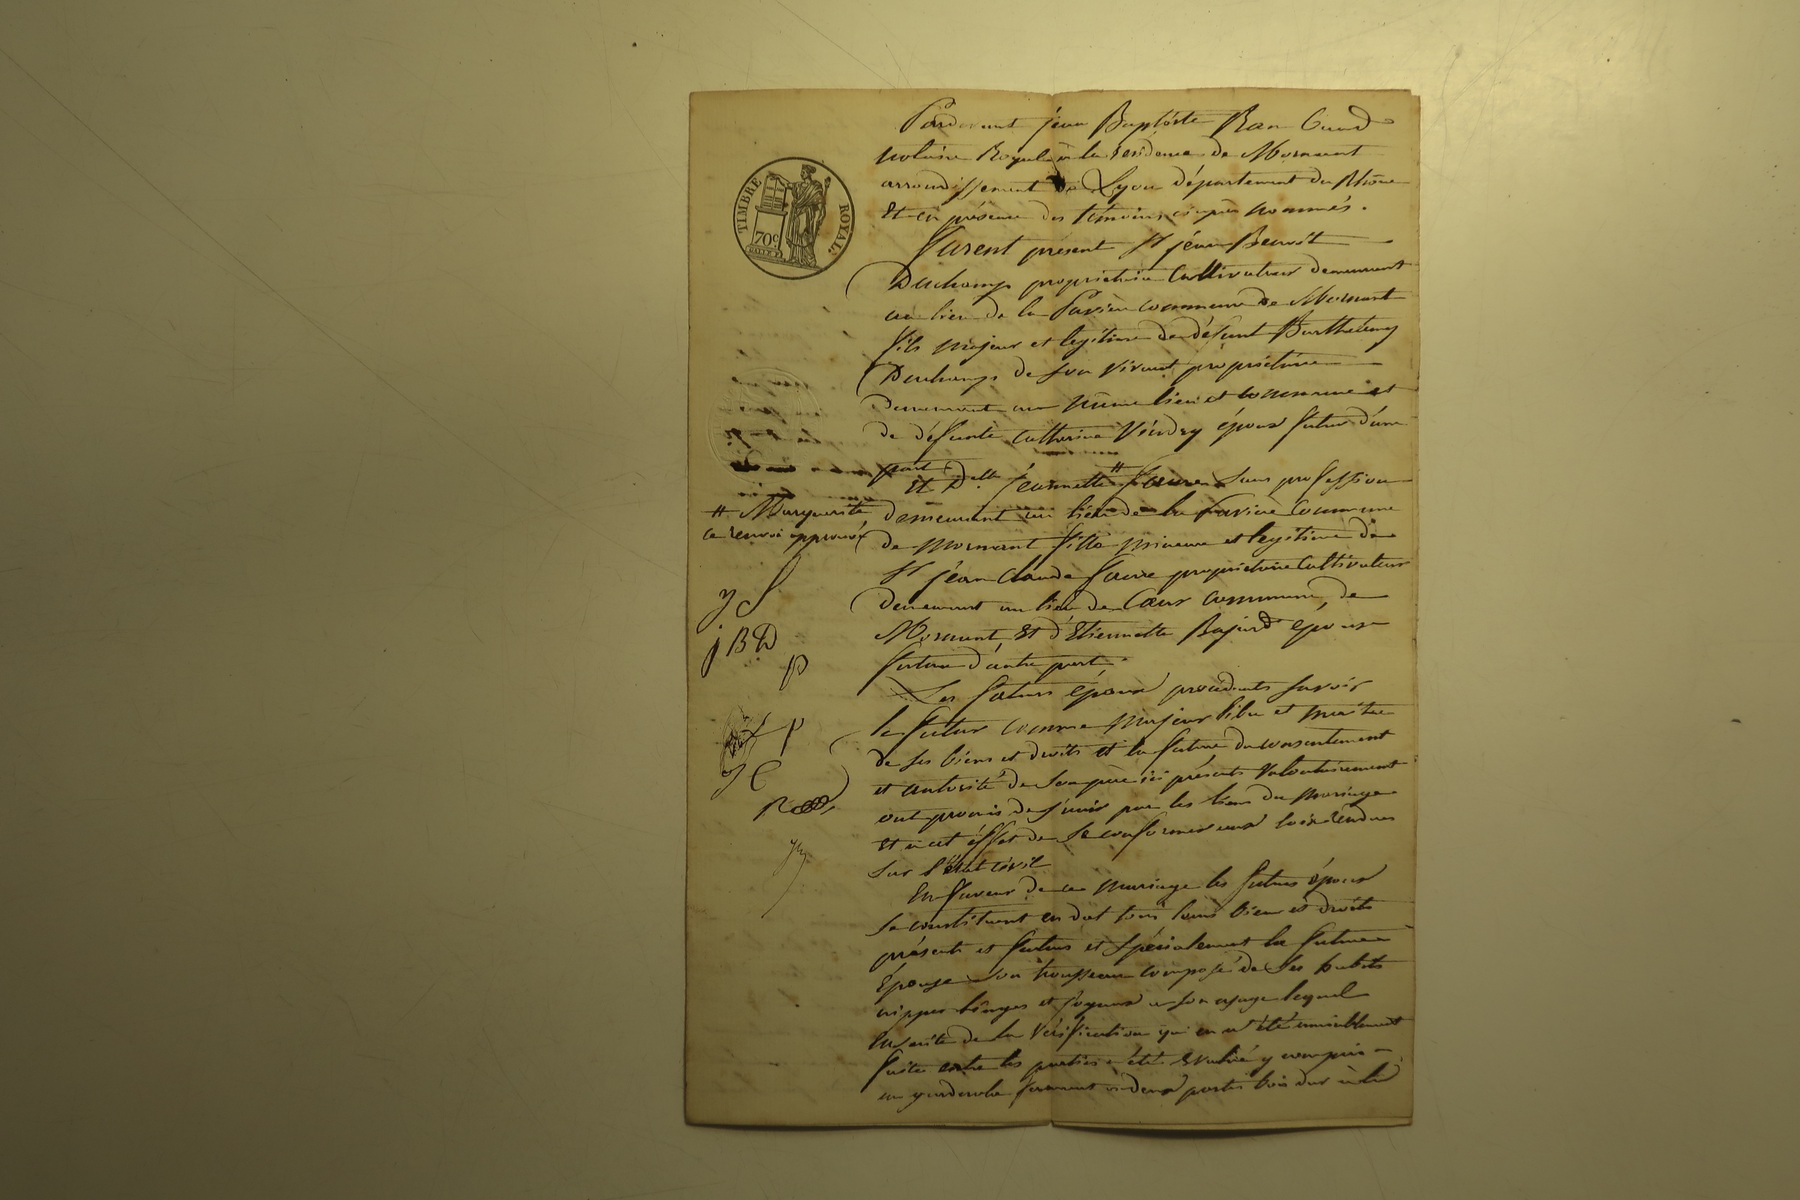 Pardevant jean Baptiste
notaire Royal à la résidence de Mornant
arrondissement de Lyon département du Rhône
Et en présence des témoins ci après nommés.
TIMBRE ROYAL
70c
furent présent Sr jean Benoît
Duchamp propriétaire Cultivateur demeurant
au lieu de la commune de Mornant
fils majeur et legitime de défunt Barthélemy
Duchamp de son vivant propriétaire
demeurant au même lieu et commune et
de défunte Catherine époux futur d'une
part
Et Delle jeannette # faure Sans profession
# Marguerite
ce renvoi approuvé
demeurant au lieu de la commune
de mornant fille mineure et legitime de
Sr jean Claude faure propriétaire Cultivateur
demeurant au lieu de commune de
Mornant, Et d'Etiennette épouse
future d'autre part.
j B D
p
Les futurs époux procédants savoir
le futur comme majeur libre et maître
de ses biens et droits et la future du consentement
et autorité de son père ici présents volontairement
ont promis de s'unir par les liens du mariage
Et à cet éffet de Se conformer aux loix rendues
sur l'état civil
En faveur de ce mariage les futurs époux
Se constituent en dot tous leurs biens et droits
présents et futurs et Spécialement la future
Épouse son trousseau composé de Ses habits
nippes linges et joyaux a son usage lequel
Ensuite de la Vérification qui en a été amiablement
faite entre les parties a été Évalué y compris
un garderobe fermant à deux portes bois dur